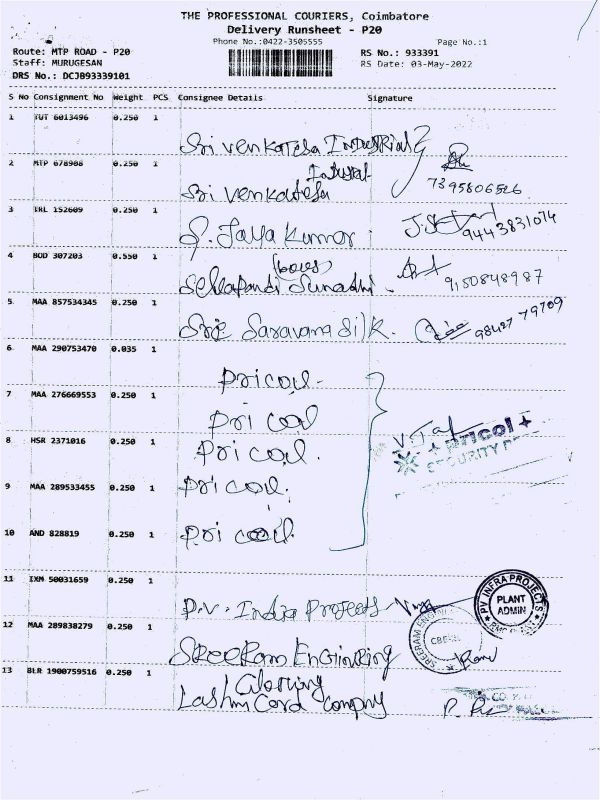 THE PROFESSIONAL COURIERS, Coimbatore
Delivery Runsheet - P20
Phone No.:0422-3505555 Page No.:1
Route: MTP ROAD - P20 RS No.: 933391
Staff: MURUGESAN RS Date: 03-May-2022
DRS No.: DCJB93339101
S No Consignment No Weight PCS Consignee Details Signature
1 TUT 6013496 0.250 1
Sri Venkatesa Industrial
2 MTP 678988 0.250 1
Sri Venkatesa
7395806526
3 0.250 1
S. Jaya Kumar. 9443831074
4 BOD 307203 0.550 1
9150848987
5 MAA 857534345 0.250 1
Sree Saravana Silk. 98427 79709
6 MAA 290753470 0.035 1
Pricol-
7 MAA 276669553 0.250 1
Pricol
8 HSR 2371016 0.250 1
Pricol.
pricol
SECURITY
9 MAA 289533455 0.250 1
Pricol.
10 AND 828819 0.250 1
Pricol.
11 IXM 50031659 0.250 1
P.V. India Projects
PV INFRA PROJECTS
PLANT
ADMIN
12 MAA 289838279 0.250 1
SREERAM
Sreeram Enginring
13 BLR 1900759516 0.250 1
Card Company